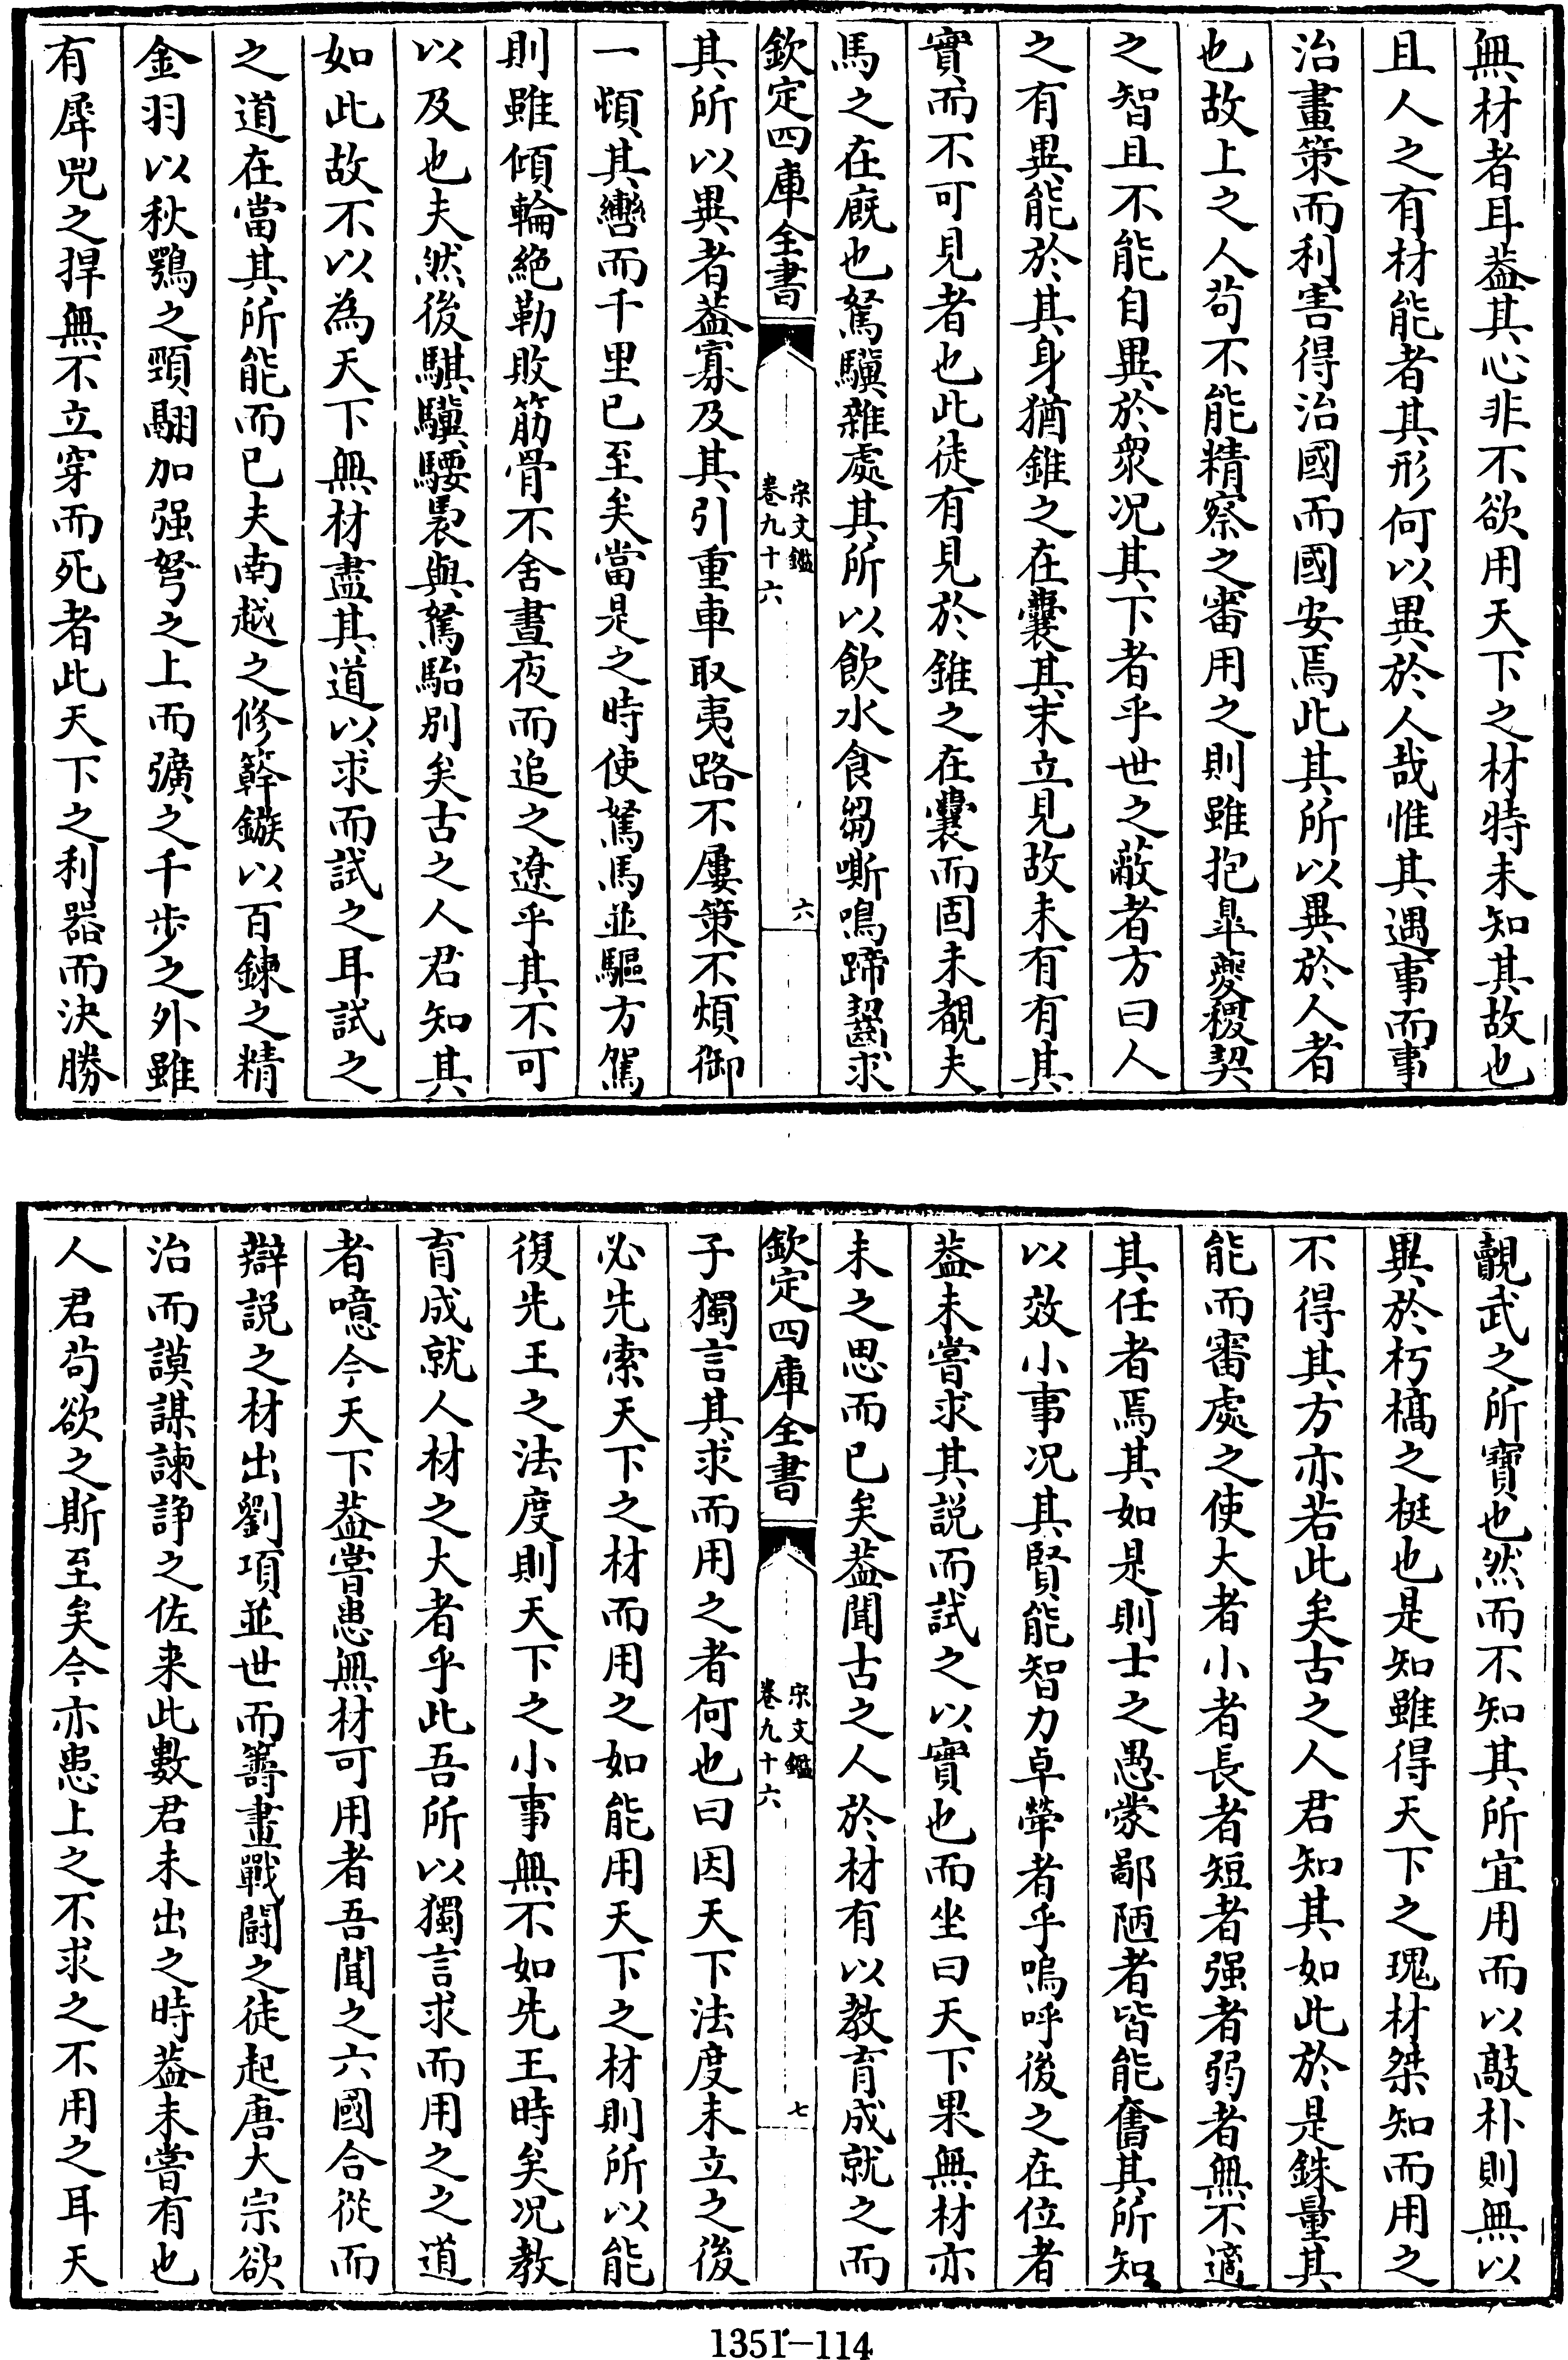 無材者耳葢其心非不欲用天下之材特未知其故也
且人之有材能者其形何以異於人哉惟其遇事而事
治畫策而利害得治國而國安焉此其所以異於人者
也故上之人苟不能精察之審用之則雖抱臯夔稷契
之智且不能自異於衆況其下者乎世之蔽者方曰人
之有異能於其身猶錐之在囊其末立見故未有有其
實而不可見者也此徒有見於錐之在囊而固未覩夫
馬之在廐也駑驥雜處其所以飲水食芻嘶鳴蹄齧求
欽定四庫全書
宋文鑑
卷九十六
六
其所以異者葢寡及其引重車取夷路不屢策不煩御
一頓其轡而千里已至矣當是之時使駑馬並驅方駕
則雖傾輪絶勒敗筋骨不舍晝夜而追之遼乎其不可
以及也夫然後騏驥騕褭與駑駘別矣古之人君知其
如此故不以為天下無材盡其道以求而試之耳試之
之道在當其所能而已夫南越之修簳鏃以百鍊之精
金羽以秋鶚之頸翮加强弩之上而彍之千步之外雖
有犀兕之捍無不立穿而死者此天下之利器而決勝
覿武之所寶也然而不知其所宜用而以敲朴則無以
異於朽槁之梃也是知雖得天下之瑰材桀知而用之
不得其方亦若此矣古之人君知其如此於是銖量其
能而審處之使大者小者長者短者强者弱者無不適
其任者焉其如是則士之愚蒙鄙陋者皆能奮其所知
以效小事況其賢能智力卓犖者乎嗚呼後之在位者
葢未嘗求其説而試之以實也而坐曰天下果無材亦
未之思而已矣葢聞古之人於材有以教育成就之而
欽定四庫全書
宋文鑑
卷九十六
七
子獨言其求而用之者何也曰因天下法度未立之後
必先索天下之材而用之如能用天下之材則所以能
復先王之法度則天下之小事無不如先王時矣況教
育成就人材之大者乎此吾所以獨言求而用之之道
者噫今天下葢嘗患無材可用者吾聞之六國合從而
辯説之材出劉項並世而籌畫戰鬬之徒起唐大宗欲
治而謨謀諫諍之佐来此數君未出之時葢未嘗有也
人君茍欲之斯至矣今亦患上之不求之不用之耳天
1351-114